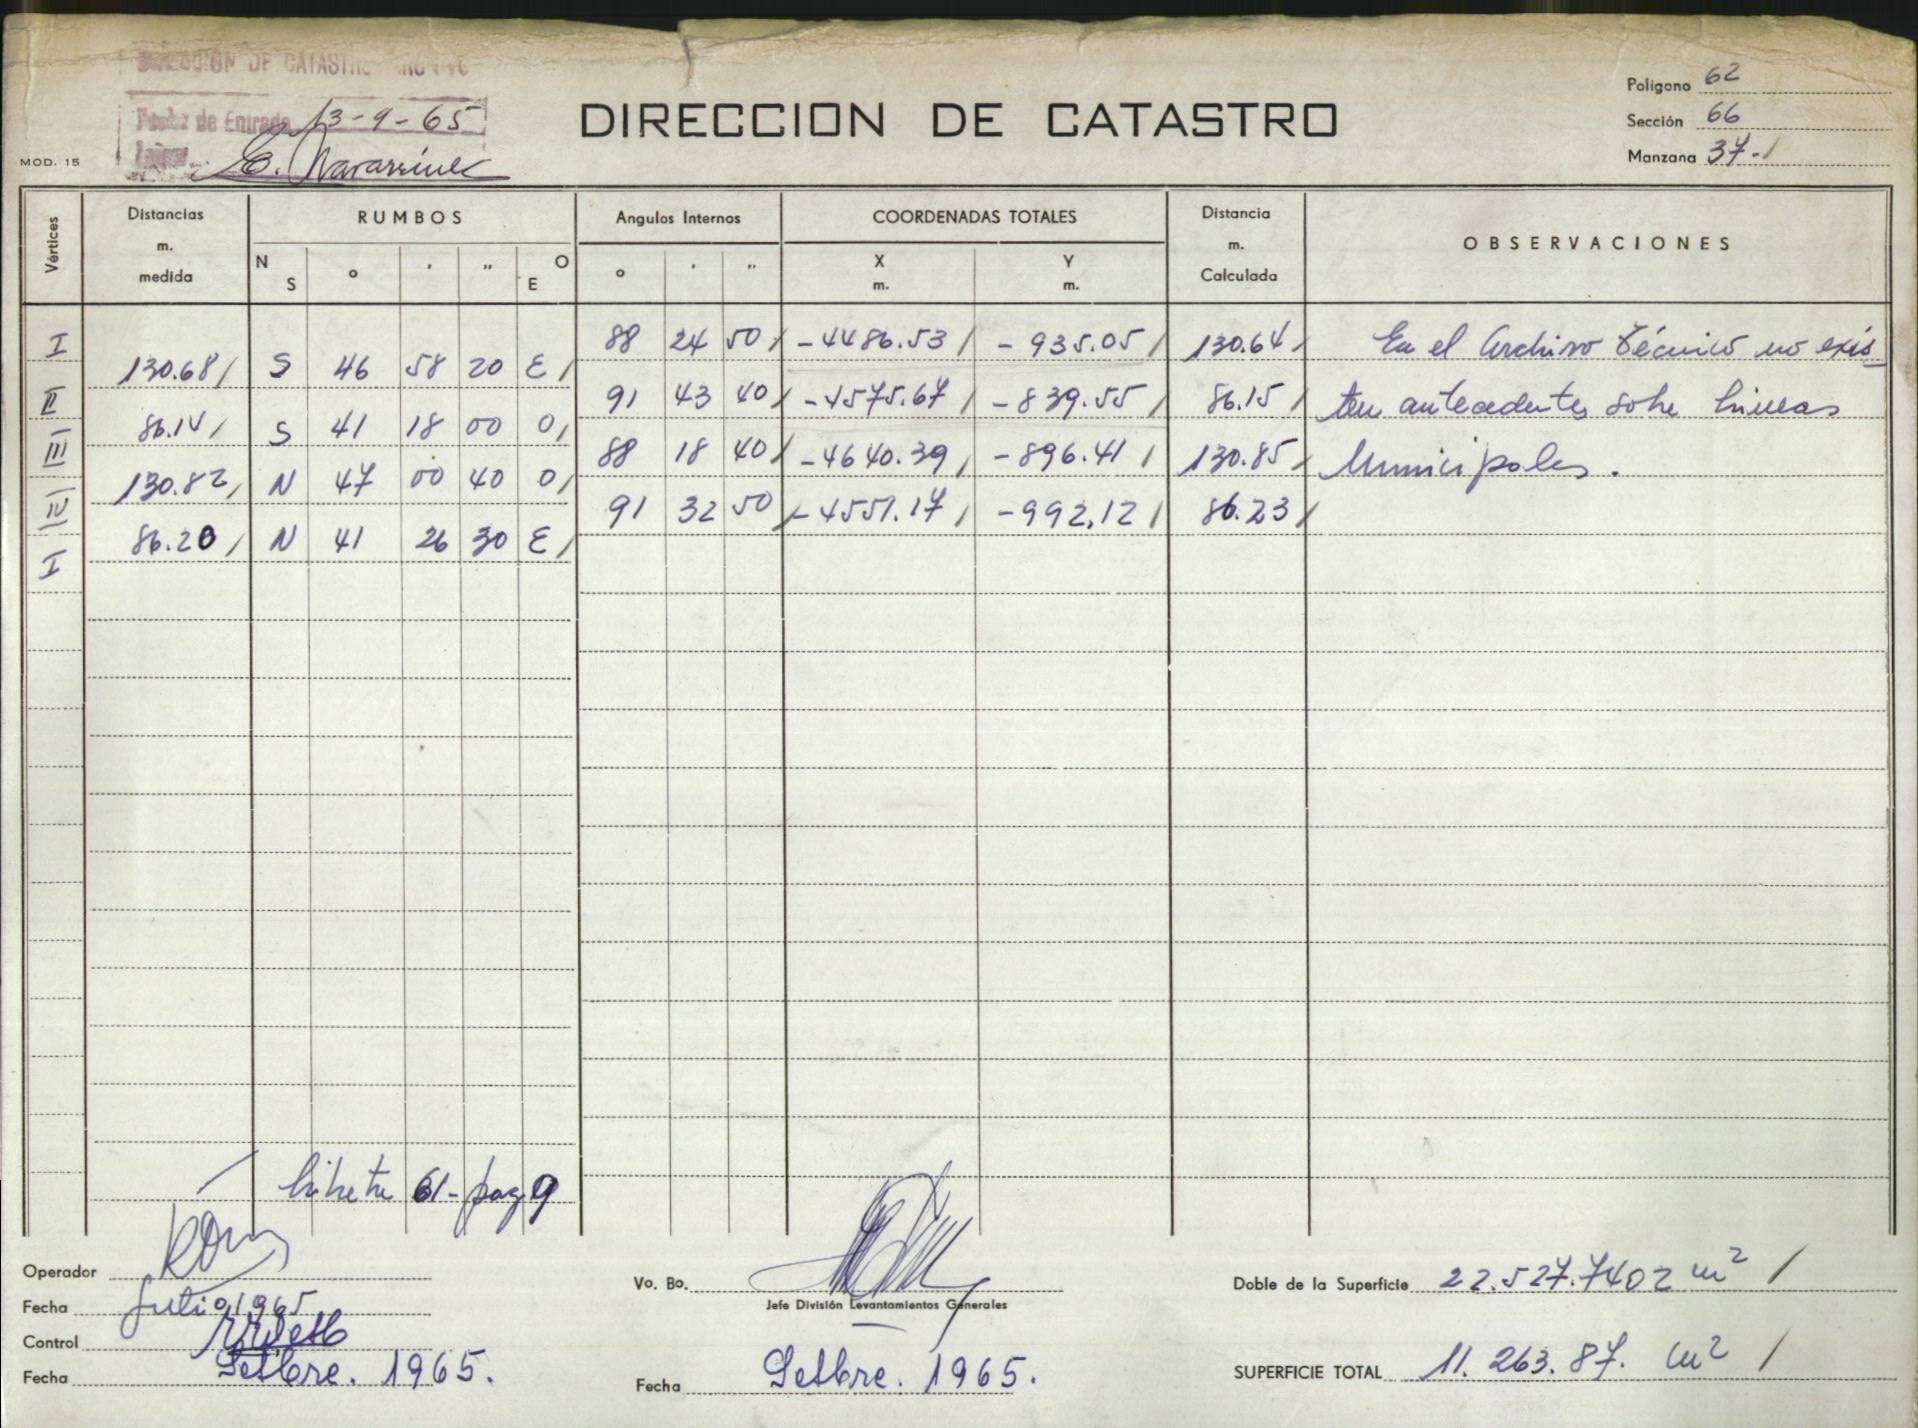 DIRECCION DE CATASTRO ARCHIVO
Fecha de Entrada 13-9-65
MOD. 15
DIRECCION DE CATASTRO
Polígono 62
Sección 66
Manzana 37.
Vértices
Distancias m. medida
RUMBOS
Angulos Internos
COORDENADAS TOTALES
Distancia m. Calculada
OBSERVACIONES
N S ° ' " O E
° ' "
X m. Y m.
I 88 24 50 -4486.53 -935.05 130.64 En el Archivo Técnico no exis
130.68 S 46 58 20 E
II 91 43 40 -4575.67 -839.55 86.15 ten antecedentes sobre lineas
86.14 S 41 18 00 O
III 88 18 40 -4640.39 -896.41 130.85 Municipales.
130.82 N 47 00 40 O
IV 91 32 50 -4551.17 -992,12 86.23
86.20 N 41 26 30 E
I
libreta 61- pag 9
Operador
Fecha Julio 1965
Control
Fecha Setbre. 1965.
Vo. Bo.
Jefe División Levantamientos Generales
Fecha Setbre. 1965.
Doble de la Superficie 22.527.7402 m²
SUPERFICIE TOTAL 11.263.87. m²